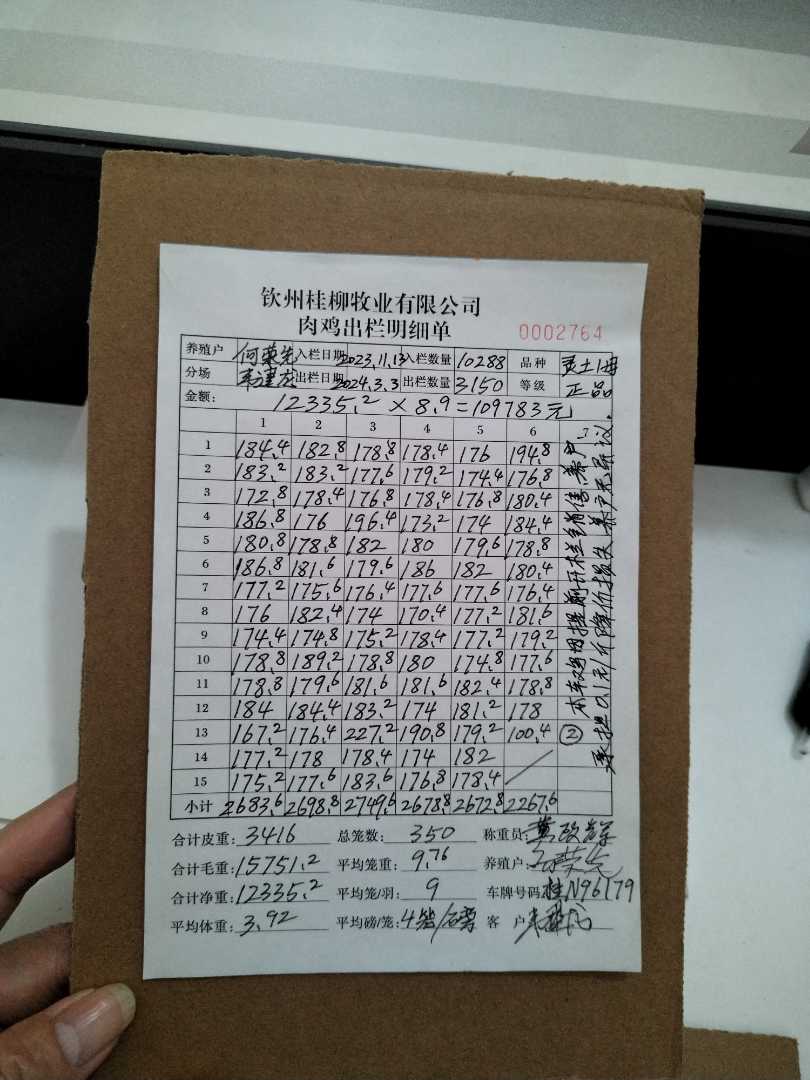 钦州桂柳牧业有限公司
肉鸡出栏明细单 0002764
养殖户 何荣先 入栏日期 2023.11.13 入栏数量 10288 品种 灵土1母
分场 韦建龙 出栏日期 2024.3.3 出栏数量 3150 等级 正品
金额: 12335.2 × 8.9 = 109783元
1 2 3 4 5 6 7
1 184.4 182.8 178.8 178.4 176 194.8
2 183.2 183.2 177.6 179.2 174.4 176.8
3 172.8 178.4 176.8 178.4 176.8 180.4
4 186.8 176 196.4 173.2 174 184.4
5 180.8 178.8 182 180 179.6 178.8
6 186.8 181.6 179.6 186 182 180.4
7 177.2 175.6 176.4 177.6 177.6 176.4
8 176 182.4 174 170.4 177.2 181.6
9 174.4 174.8 175.2 178.4 177.2 179.2
10 178.8 189.2 178.8 180 174.8 177.6
11 178.8 179.6 181.6 181.6 182.4 178.8
12 184 184.4 183.2 174 181.2 178
13 167.2 176.4 227.2 190.8 179.2 100.4 ②
14 177.2 178 178.4 174 182
15 175.2 177.6 183.6 176.8 178.4
小计 2683.6 2698.8 2749.6 2678.8 2672.8 2267.6
本车鸡因提前开栏销售,养户
承担0.1元/斤降价损失,养户无异议。
合计皮重: 3416 总笼数: 350 称重员:
合计毛重: 15751.2 平均笼重: 9.76 养殖户:
合计净重: 12335.2 平均笼/羽: 9 车牌号码: 桂N96179
平均体重: 3.92 平均磅/笼: 4笼/磅 客 户